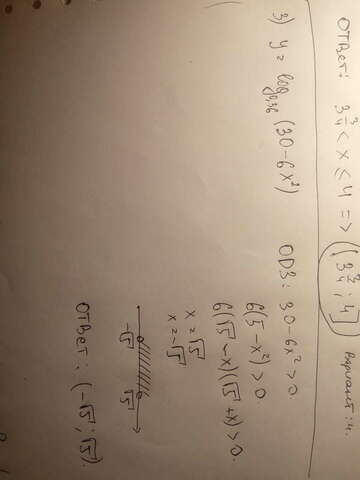 Ответ: 3 3/4 < x ≤ 4 => (3 3/4 ; 4]
Вариант: 4.
3) y = log₀,₃₆ (30 - 6x²)
ОДЗ: 30 - 6x² > 0
6(5 - x²) > 0
6(√5 - x)(√5 + x) > 0.
x = √5
x = -√5
-√5 √5
Ответ: (-√5 ; √5).